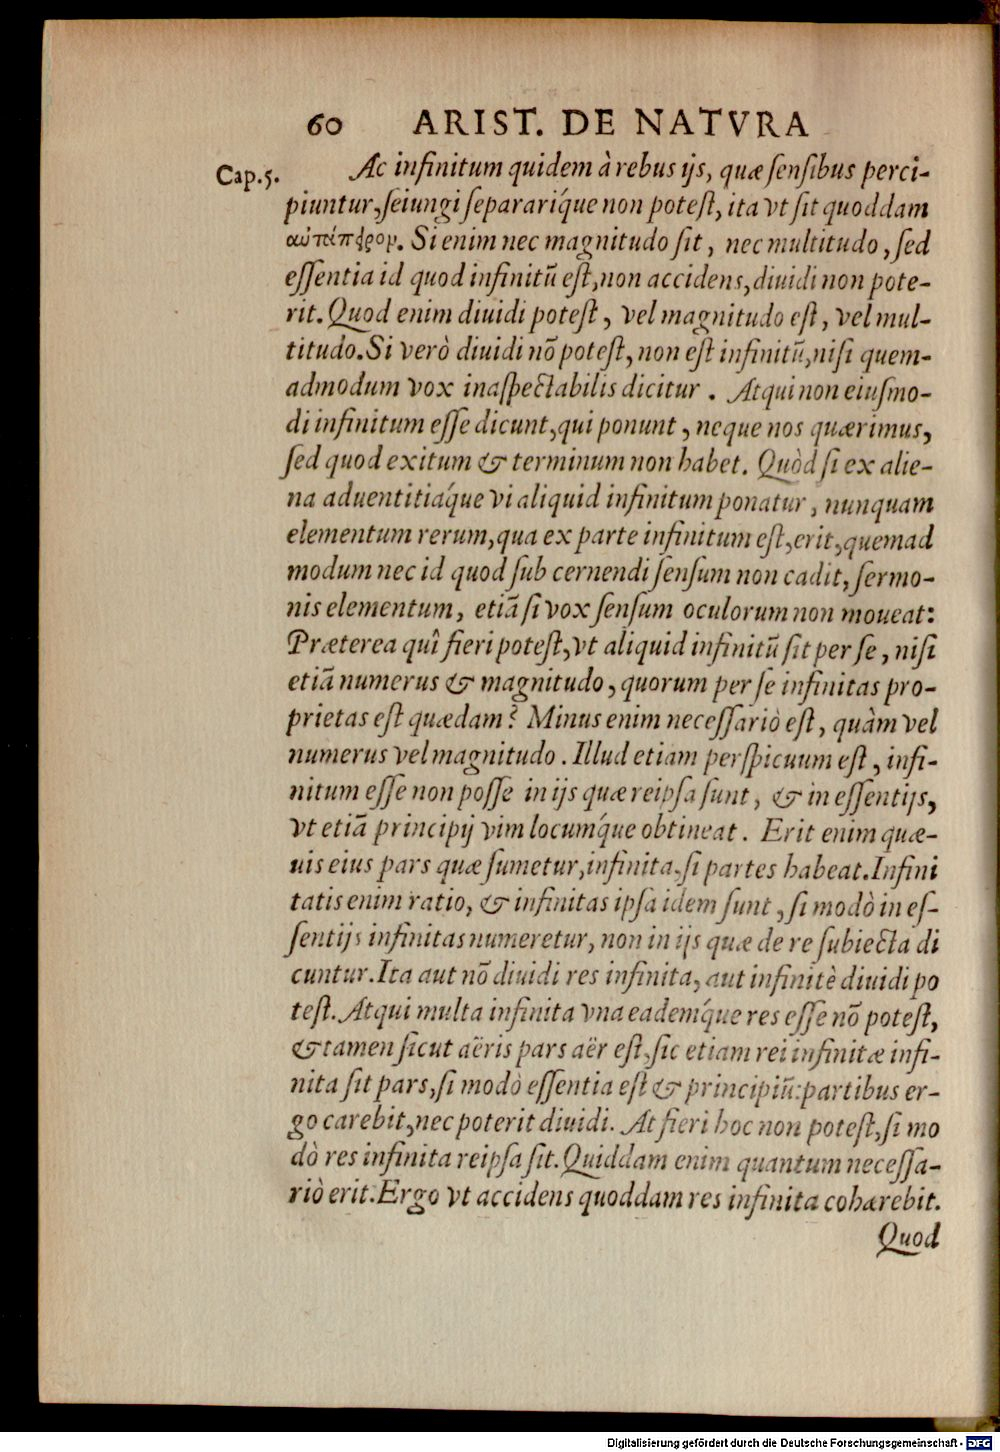 60 ARIST. DE NATVRA
Cap.5. Ac infinitum quidem à rebus ijs, quæ sensibus perci-
piuntur, seiungi separariq́ue non potest, ita vt sit quoddam
Si enim nec magnitudo sit, nec multitudo, sed
essentia id quod infinitũ est, non accidens, diuidi non pote-
rit. Quod enim diuidi potest, vel magnitudo est, vel mul-
titudo. Si verò diuidi nõ potest, non est infinitũ, nisi quem-
admodum vox inaspectabilis dicitur. Atqui non eiusmo-
di infinitum esse dicunt, qui ponunt, neque nos quærimus,
sed quod exitum & terminum non habet. Quòd si ex alie-
na aduentitiaq́ue vi aliquid infinitum ponatur, nunquam
elementum rerum, qua ex parte infinitum est, erit, quemad
modum nec id quod sub cernendi sensum non cadit, sermo-
nis elementum, etiã si vox sensum oculorum non moueat:
Præterea quî fieri potest, vt aliquid infinitũ sit per se, nisi
etiã numerus & magnitudo, quorum per se infinitas pro-
prietas est quædam? Minus enim necessariò est, quàm vel
numerus vel magnitudo. Illud etiam perspicuum est, infi-
nitum esse non posse in ijs quæ reipsa sunt, & in essentijs,
vt etiã principij vim locumq́ue obtineat. Erit enim quæ-
uis eius pars quæ sumetur, infinita, si partes habeat. Infini
tatis enim ratio, & infinitas ipsa idem sunt, si modò in es-
sentijs infinitas numeretur, non in ijs quæ de re subiecta di
cuntur. Ita aut nõ diuidi res infinita, aut infinitè diuidi po
test. Atqui multa infinita vna eademq́ue res esse nõ potest,
& tamen sicut aëris pars aër est, sic etiam rei infinitæ infi-
nita sit pars, si modò essentia est & principiũ: partibus er-
go carebit, nec poterit diuidi. At fieri hoc non potest, si mo
dò res infinita reipsa sit. Quiddam enim quantum necessa-
riò erit. Ergo vt accidens quoddam res infinita cohærebit.
Quod
Digitalisierung gefördert durch die Deutsche Forschungsgemeinschaft - DFG